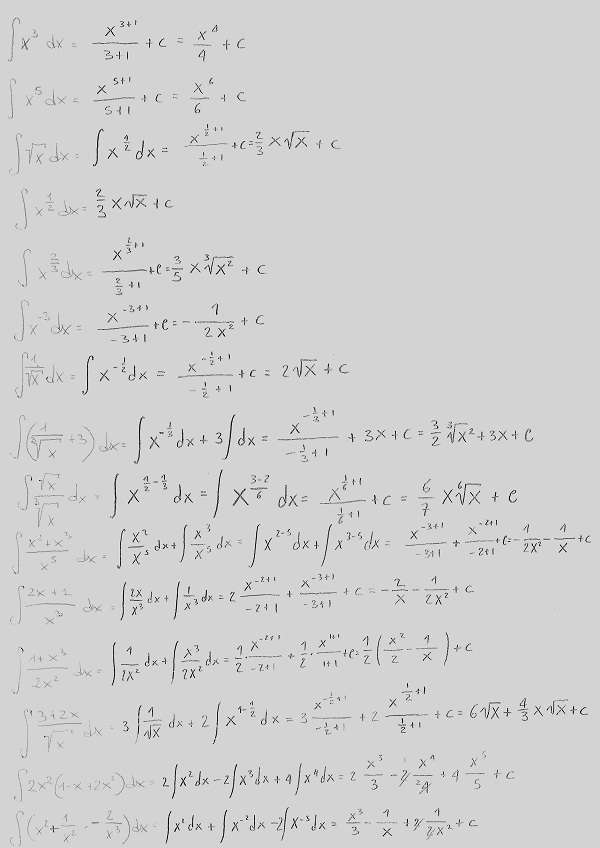 ∫ x³ dx = x^(3+1)/(3+1) + c = x⁴/4 + c
∫ x⁵ dx = x^(5+1)/(5+1) + c = x⁶/6 + c
∫ √x dx = ∫ x^(1/2) dx = x^(1/2+1)/(1/2+1) + c = 2/3 x√x + c
∫ x^(1/2) dx = 2/3 x√x + c
∫ x^(2/3) dx = x^(2/3+1)/(2/3+1) + c = 3/5 x ∛(x²) + c
∫ x⁻³ dx = x^(-3+1)/(-3+1) + c = - 1/(2x²) + c
∫ 1/√x dx = ∫ x^(-1/2) dx = x^(-1/2+1)/(-1/2+1) + c = 2√x + c
∫ (1/∛x + 3) dx = ∫ x^(-1/3) dx + 3 ∫ dx = x^(-1/3+1)/(-1/3+1) + 3x + c = 3/2 ∛x² + 3x + c
∫ √x/∛x dx = ∫ x^(1/2-1/3) dx = ∫ x^((3-2)/6) dx = x^(1/6+1)/(1/6+1) + c = 6/7 x ⁶√x + c
∫ (x²+x³)/x⁵ dx = ∫ x²/x⁵ dx + ∫ x³/x⁵ dx = ∫ x^(2-5) dx + ∫ x^(3-5) dx = x^(-3+1)/(-3+1) + x^(-2+1)/(-2+1) + c = - 1/(2x²) - 1/x + c
∫ (2x+1)/x³ dx = ∫ 2x/x³ dx + ∫ 1/x³ dx = 2 x^(-2+1)/(-2+1) + x^(-3+1)/(-3+1) + c = - 2/x - 1/(2x²) + c
∫ (1+x³)/(2x²) dx = ∫ 1/(2x²) dx + ∫ x³/(2x²) dx = 1/2 · x^(-2+1)/(-2+1) + 1/2 · x^(1+1)/(1+1) + c = 1/2 (x²/2 - 1/x) + c
∫ (3+2x)/√x dx = 3 ∫ 1/√x dx + 2 ∫ x^(1-1/2) dx = 3 x^(-1/2+1)/(-1/2+1) + 2 x^(1/2+1)/(1/2+1) + c = 6√x + 4/3 x√x + c
∫ 2x²(1-x+2x²) dx = 2 ∫ x² dx - 2 ∫ x³ dx + 4 ∫ x⁴ dx = 2 x³/3 - 2 x⁴/4 + 4 x⁵/5 + c
∫ (x² + 1/x² - 2/x³) dx = ∫ x² dx + ∫ x⁻² dx - 2 ∫ x⁻³ dx = x³/3 - 1/x + 2 1/(2x²) + c